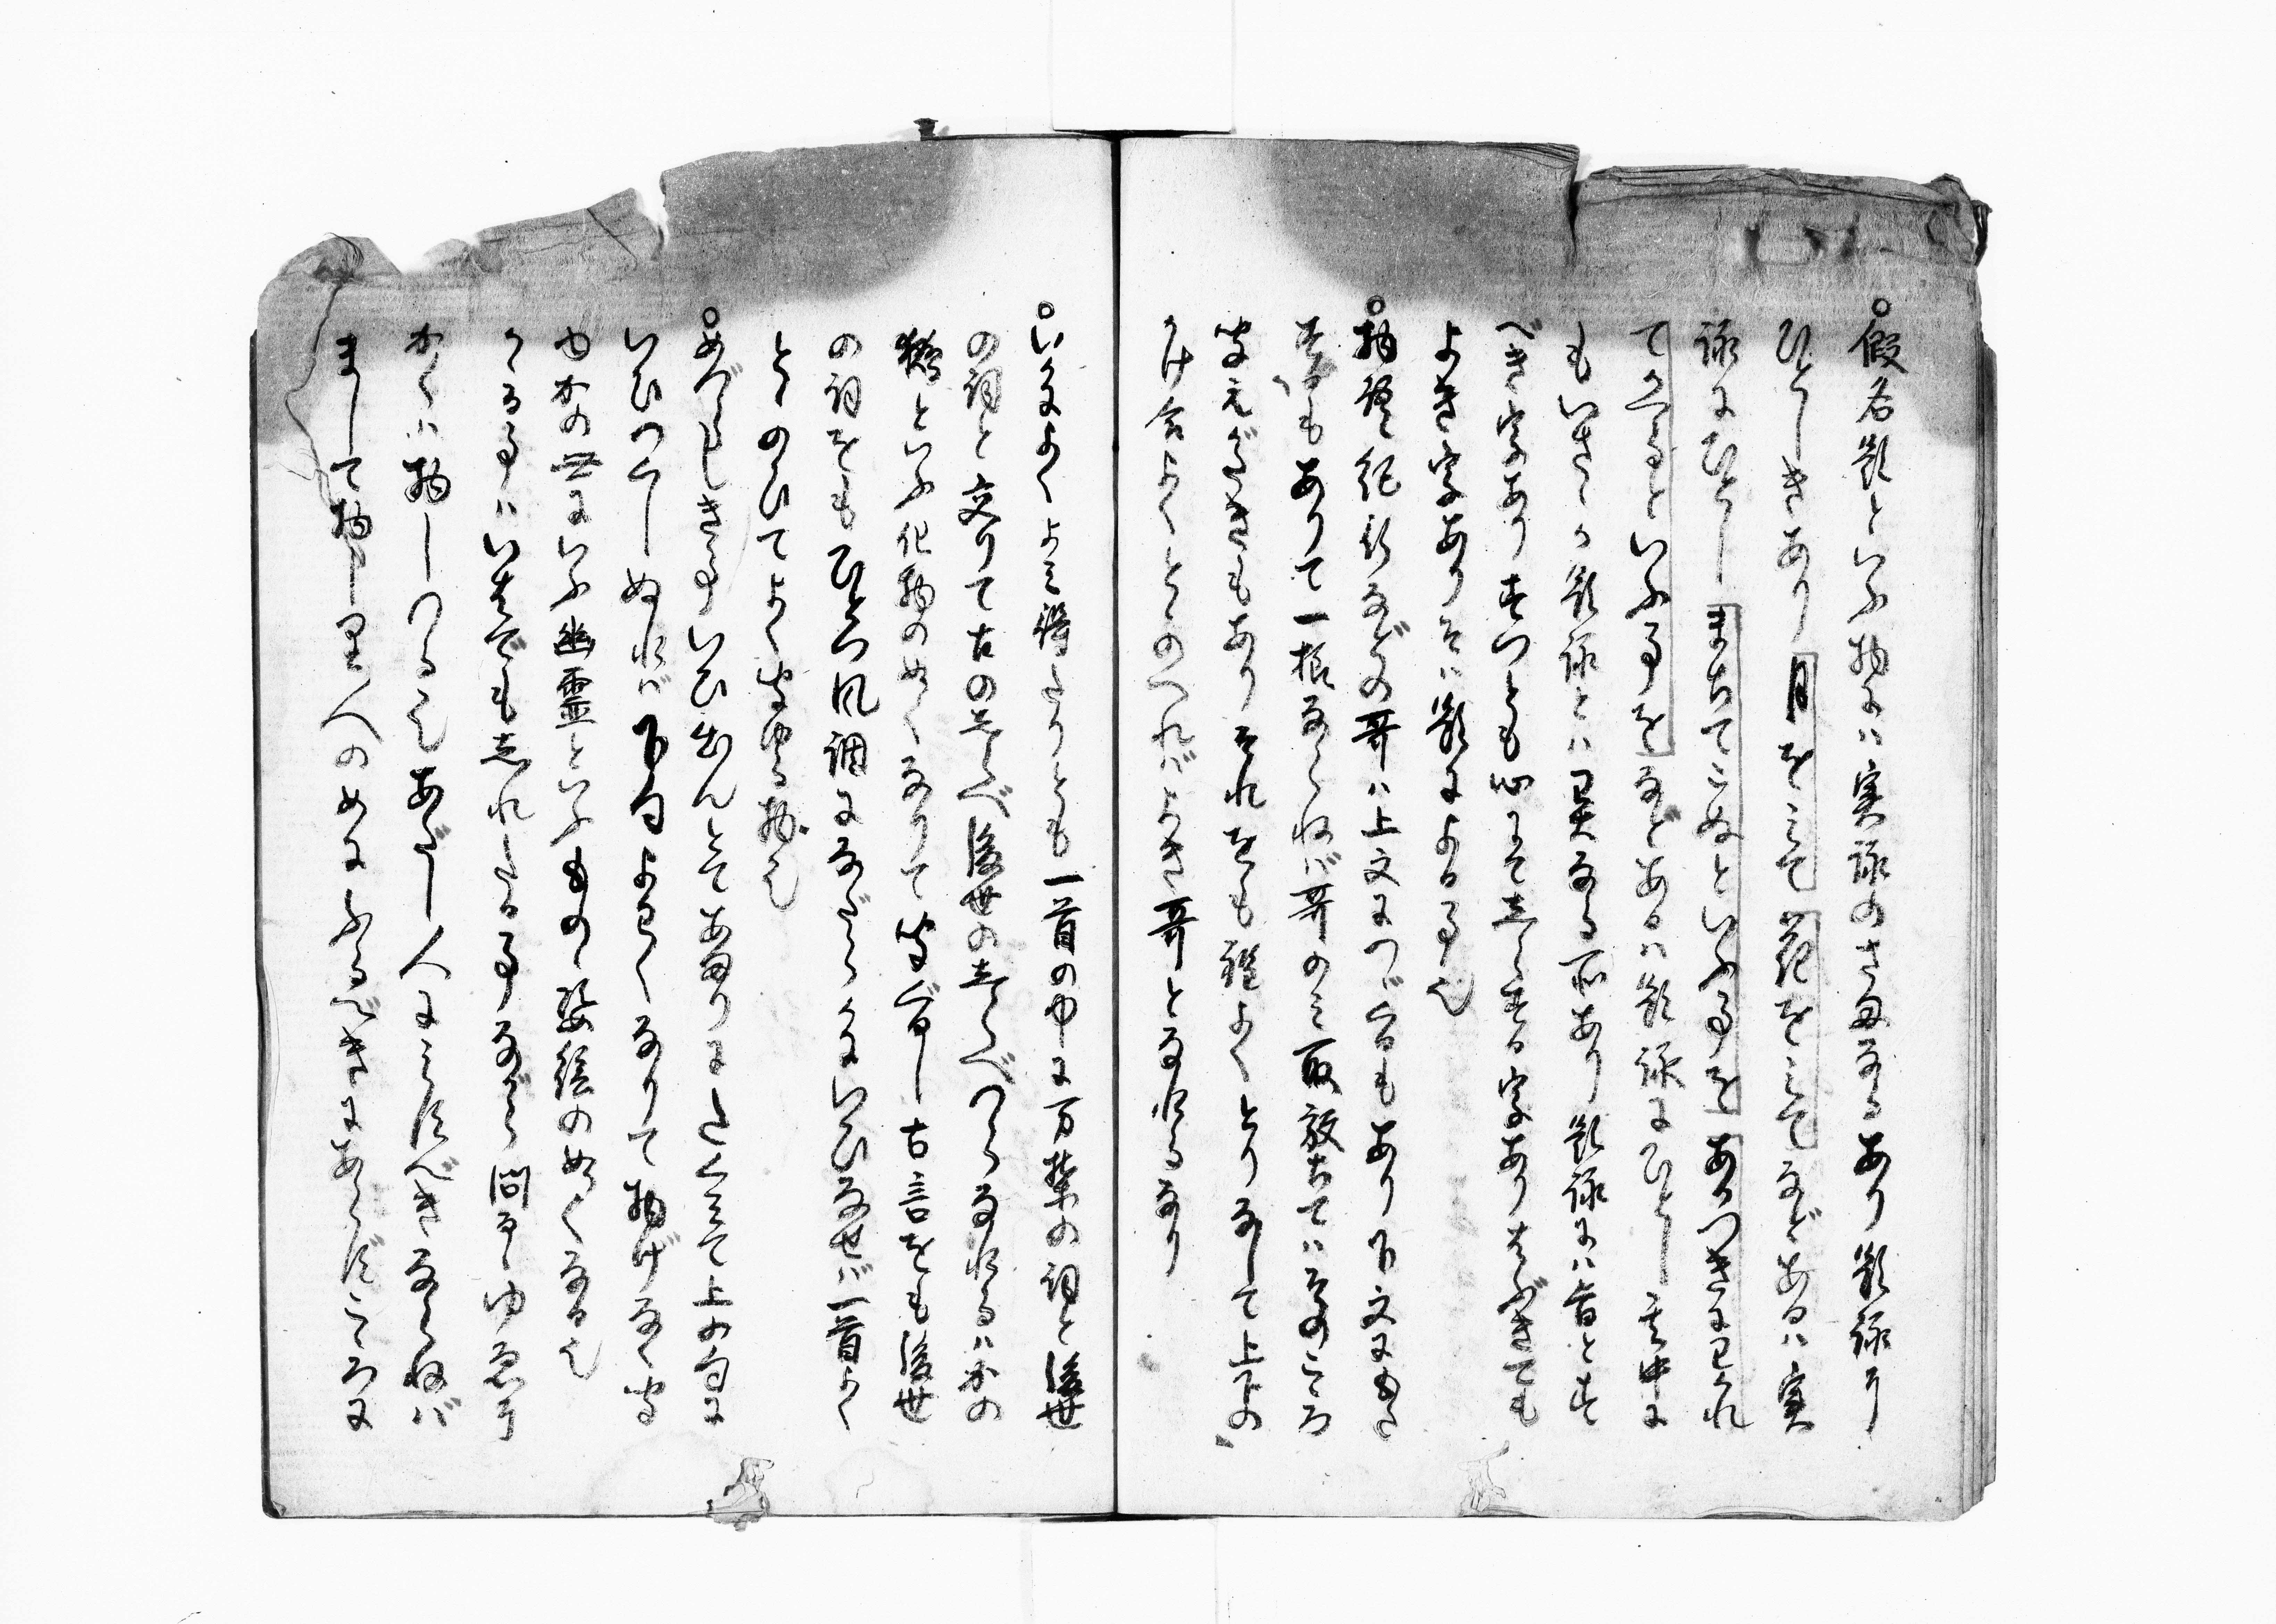 ○假名題といふ物には実詠のさまなるあり題詠に
ひとしきあり月をみて花をみてなどあるは実
詠にひとしまちてこぬといふ事をあかつきにわかれ
てかへるといふ事をなどあるは題詠にひとし其中に
もいさゝか題詠とは異なる所あり題詠には旨とす
べき字ありすつとも心にてしらする字ありはぶきても
よき字ありそは題による事也
○物語紀行などの哥は上文につゞくるもあり下文に
もありて一根ならねば哥のみ取放ちてはそのこゝろ
聞えがたきもありそれをも程よくとりなして上下の
かけ合よくとゝのへればよき哥となれるなり
○いかによくよみ得たりとも一首の中に万葉の詞と後世
の詞と交りて古のしらべ後世のしらべつらなれるはかの
鵺といふ化物の如くなりて聞ぐるし古言をも後世
の詞をもひとつ風調になだらかにいひなせば一首よく
とゝのひてよく聞ゆる物也
○めづらしき事いひ出んとてあまりにたくみて上の句に
いひつくしぬれば下の句よわくなりて物げなく聞
ゆかの世にいふ幽霊といふものゝ姿絵の如くなる也
かゝる事はいはでもしれたる事ながら問るゝゆゑに
かくは物しつる也あだし人にみすべきならねば
まして物しり人のめにふるべきにあらずこゝろに